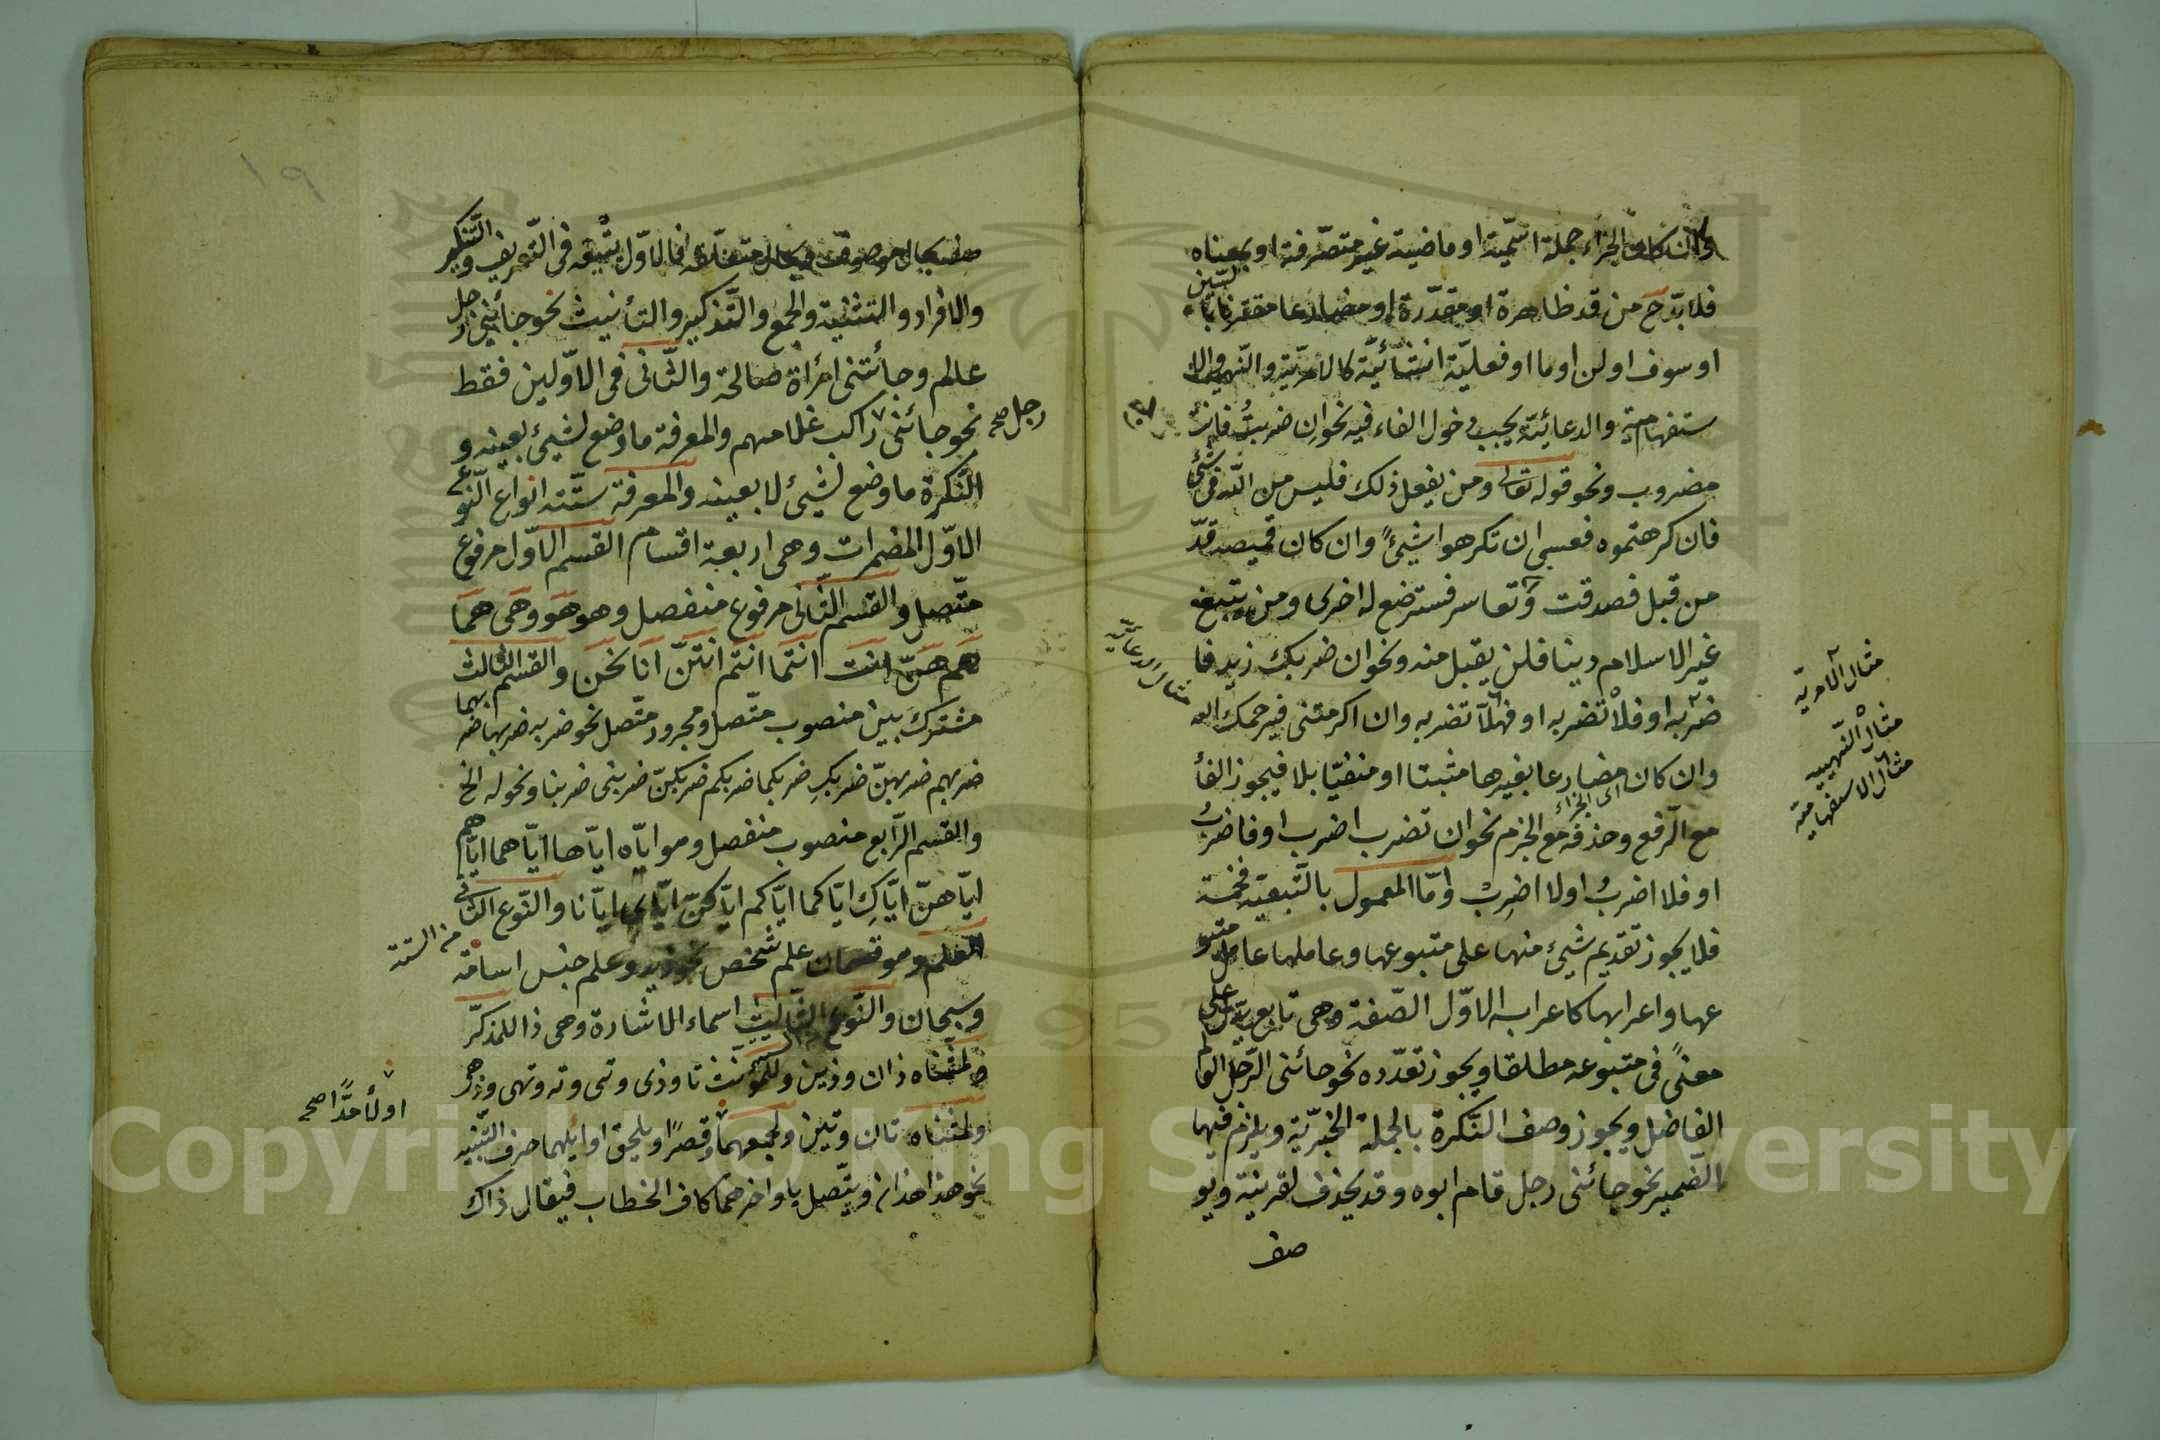 وان كان الجزاء جملة اسمية او ماضية غير متصرفة او بمعناه
فلا بد ح من قد ظاهرة او مقدرة او مضارعا مقترنا بالسين
او سوف او لن او ما او فعلية انشائية كالامرية والنهيية والا
ستفهامية والدعائية يجب دخول الفاء فيه نحو ان ضربت فانت
مضروب ونحو قوله تعالى ومن يفعل ذلك فليس من الله فى شئ
فان كرهتموه فعسى ان تكرهوا شيئا وان كان قميصه قد
من قبل فصدقت وتعاسر فسترضع له اخرى ومن يتبغ
غير الاسلام دينا فلن يقبل منه ونحو ان ضربك زيد فا
ضربه او فلا تضربه او فهلا تضربه وان اكرمتنى فيرحمك الله
وان كان مضارعا بغيرها مثبتا او منفيا بلا فيجوز الفأ
مع الرفع وحذفه مع الجزم نحو ان تضرب اضرب او فاضرب
اى الجزاء
او فلا اضرب او لا اضرب واما المعمول بالتبعية فخمسة
فلا يجوز تقديم شيئ منها على متبوعها وعاملها عامل متبو
عها واعرابها كاعرابه الاول الصفة وهى تابع يدل على
معنى فى متبوعه مطلقا ويجوز تعدده نحو جائنى الرجل العالم
الفاضل ويجوز وصف النكرة بالجملة الخبرية ويلزم فيها
الضمير نحو جائنى رجل قام ابوه وقد يحذف لقرينة ويو
صف
مثال الامرية
مثال النهيية
مثال الاستفهامية
مثال الدعائية
١٩
بحال موصوفه وبحال متعلقه فالاول يتبعه فى التعريف والتنكير
والافراد والتثنية والجمع والتذكير والتأنيث نحو جائنى رجل
عالم وجائتنى امرأة صالحة والثانى فى الاولين فقط
نحو جائنى راكب غلامهم والمعرفة ما وضع لشيئ بعينه و
رجل صح
النكرة ما وضع لشيئ لا بعينه والمعرفة ستة انواع النوع
الاول المضمرات وهى اربعة اقسام القسم الاول مرفوع
متصل والقسم الثانى مرفوع منفصل وهو هو وهى هما
هم هن انت انتما انتم انتن انا نحن والقسم الثالث
مشترك بين منصوب متصل ومجرور متصل نحو ضربه ضربها ضربهما
ضربهم ضربهن ضربك ضربكما ضربكم ضربكن ضربنى ضربنا ونحو له الخ
والقسم الرابع منصوب منفصل وهو اياه اياها اياهما اياهم
اياهن اياك اياكما اياكم اياكن اياى ايانا والنوع الثانى
من الستة
العلم وهو قسمان علم شخص نحو زيد وعلم جنس اسامة
وسبحان والنوع الثالث اسماء الاشارة وهى ذا للمذكر
ولمثناه ذان وذين وللمؤنث تا وذى وتى وته وتهى وذهى
ولمثناه تان وتين ولجمعهما وقصرا ويلحق اوائلهما حرف التنبيه
اولاء مدا صح
نحو هذا هذان ويتصل باواخرهما كاف الخطاب فيقال ذاك
Copyright © King Saud University
1957